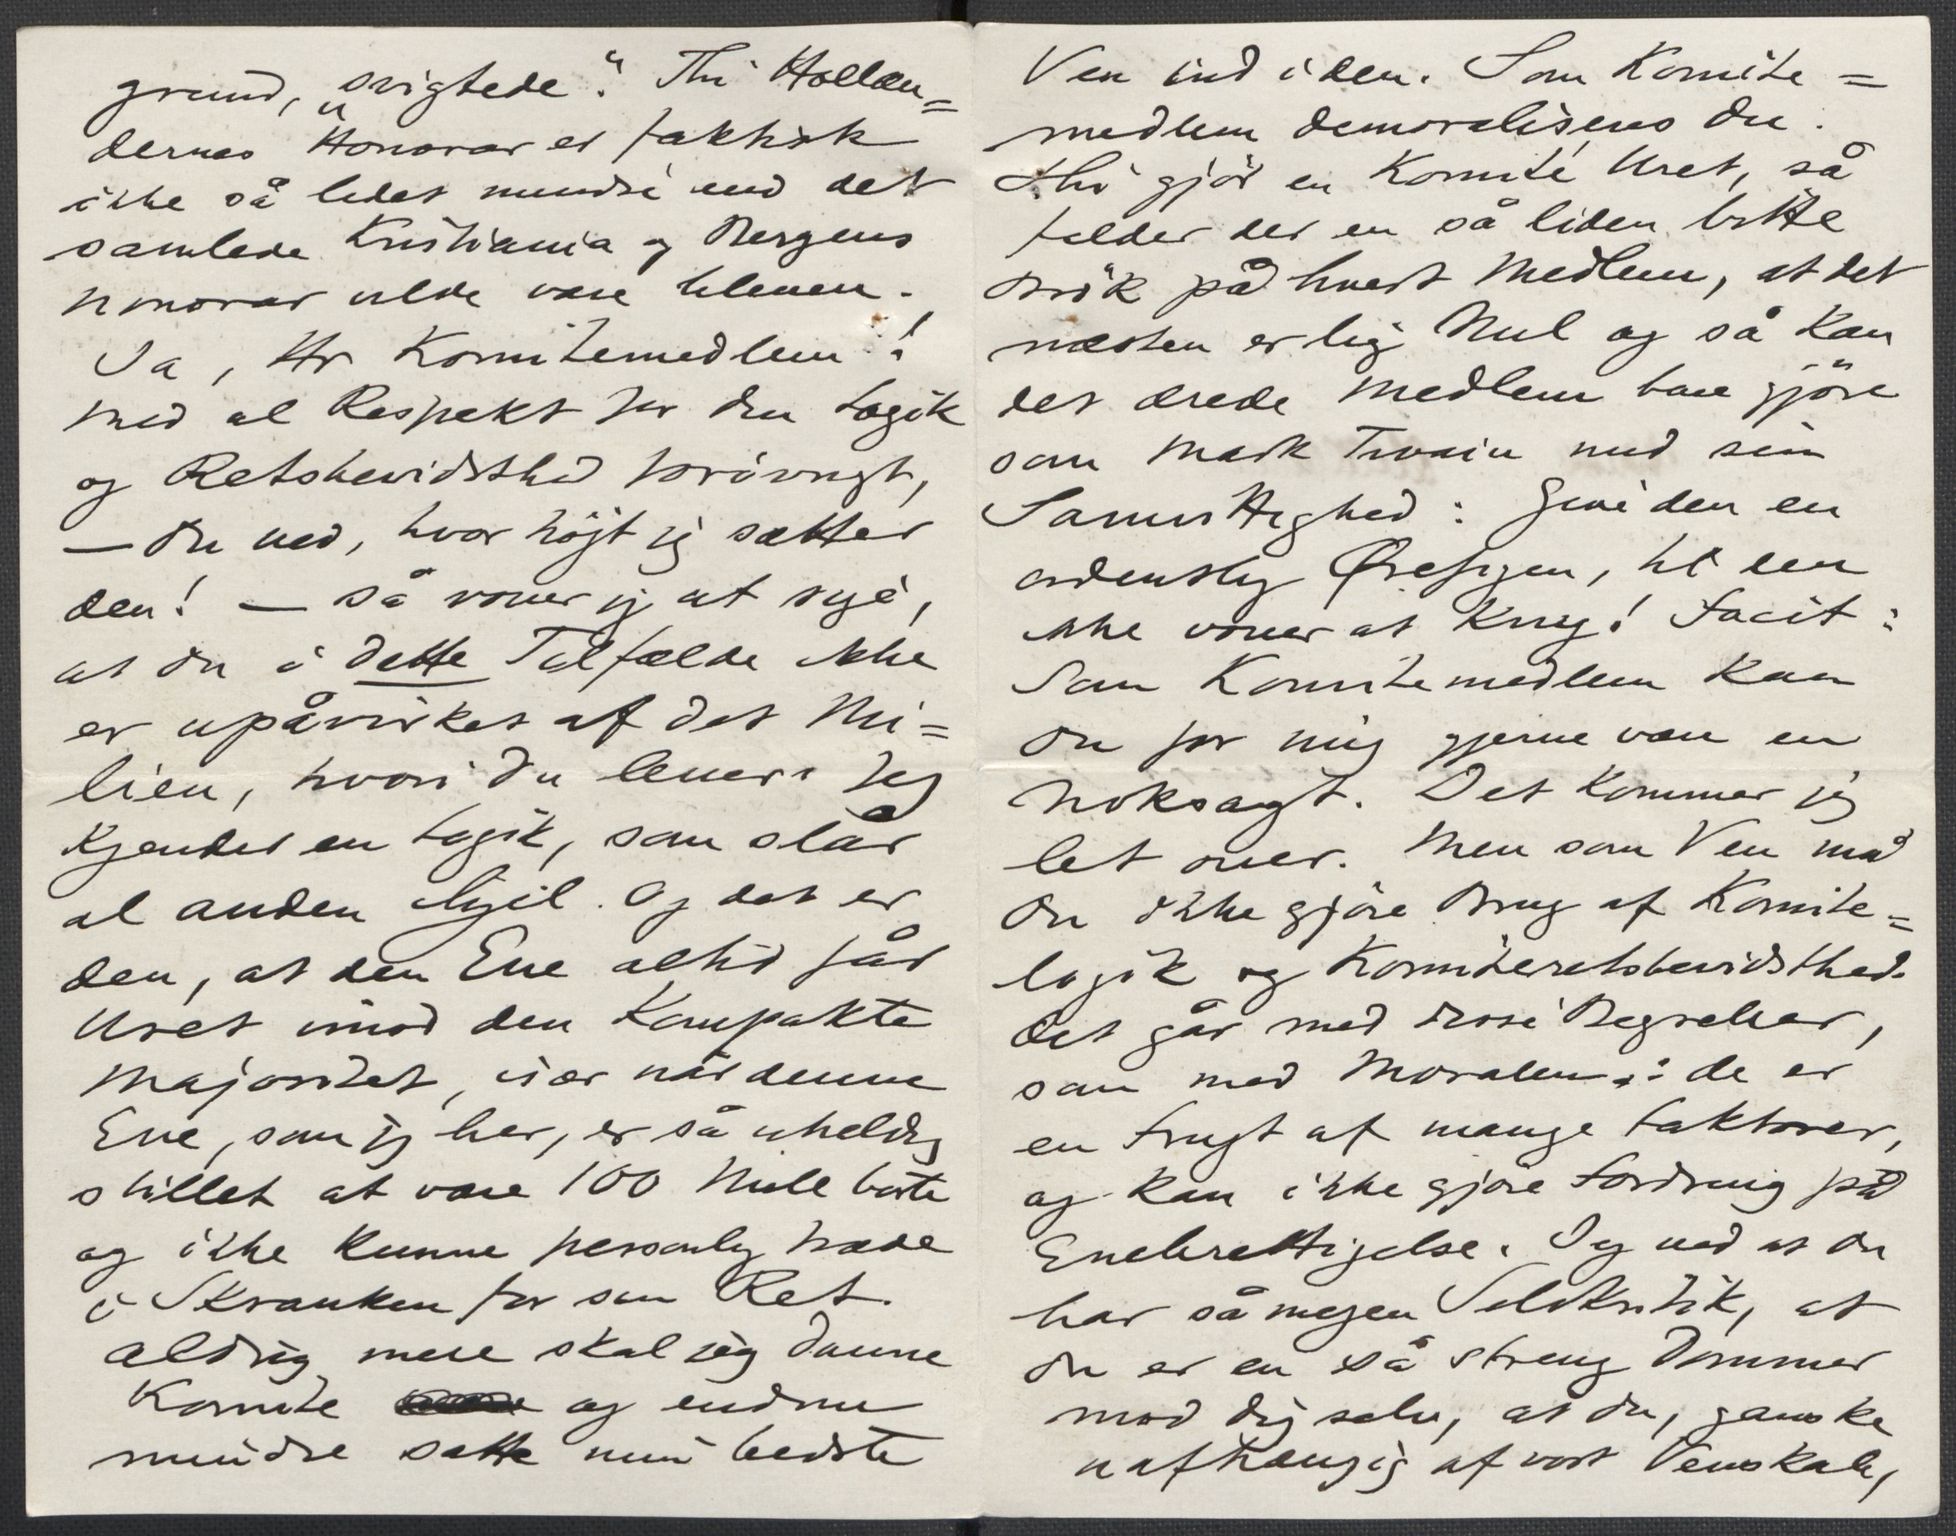 grund, „svigtede". Thi Hollæn=
dernes Honorar er faktisk
ikke så lidet mindre end det
samlede Kristiania og Bergens
honorar vilde være bleven.
Ja, Hr Komitemedlem!
Med al Respekt for din Logik
og Retsbevidsthed forøvrigt,
— du ved, hvor højt jeg sætter
den! — så vover jeg at sige,
at du i dette Tilfælde ikke
er upåvirket af det Mi=
lieu, hvori du lever. Jeg
kjender en Logik, som slår
al anden ihjel. Og det er
den, at den Ene altid får
Uret imod den kompakte
Majoritet, især når denne
Ene, som jeg her, er så uheldig
stillet at være 100 Mile borte
og ikke kunne personlig træde
i Skranken for sin Ret.
Aldrig mere skal jeg danne
Komite og endnu
mindre sætte min bedste
Ven ind i den. Som Komite=
medlem demoraliseres du.
Thi gjør en Komité Uret, så
falder der en så liden bitte
Brøk på hvert Medlem, at det
næsten er lig Nul og så kan
det ærede Medlem bare gjöre
som Mark Twain med sin
Samvittighed: Give den en
ordentlig Ørefigen, til den
ikke vover at kny! Facit:
Som Komitemedlem kan
du for mig gjerne være en
Noksagt. Det kommer jeg
let over. Men som Ven må
du ikke gjöre Brug af Komite=
logik og Komiteretsbevidsthed.
Det går med disse Begreber,
som med Moralen: de er
en Frugt af mange Faktorer,
og kan ikke gjöre Fordring på
Eneberettigelse. Jeg ved at du
har så megen Selvkritik, at
du er en så streng Dommer
mod dig selv, at du, ganske
uafhængig af vort Venskab,